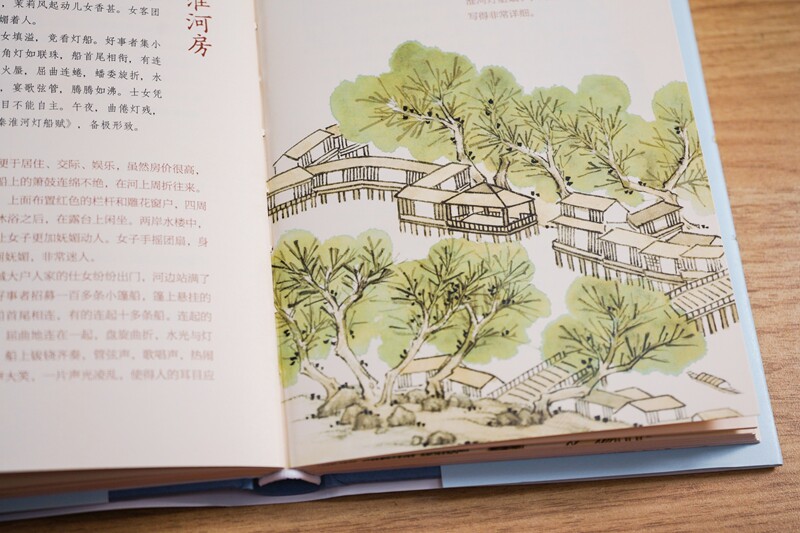 淮河房
，茉莉风起动儿女香甚。女客团
媚着人。
女填溢，竞看灯船。好事者集小
角灯如联珠，船首尾相衔，有连
火蜃，屈曲连蜷，蟠委旋折，水
，宴歌弦管，腾腾如沸。士女凭
目不能自主。午夜，曲倦灯残，
秦淮河灯船赋》，备极形致。
便于居住、交际、娱乐，虽然房价很高，
船上的箫鼓连绵不绝，在河上周折往来。
上面布置红色的栏杆和雕花窗户，四周
沐浴之后，在露台上闲坐。两岸水楼中，
让女子更加妩媚动人。女子手摇团扇，身
妩媚，非常迷人。
城大户人家的仕女纷纷出门，河边站满了
事者招募一百多条小篷船，篷上悬挂的
首尾相连，有的连起十多条船，连起的
屈曲地连在一起，盘旋曲折，水光与灯
船上铙钹齐奏，管弦声，歌唱声，热闹
声大笑，一片声光凌乱，使得人的耳目应
写得非常详细。